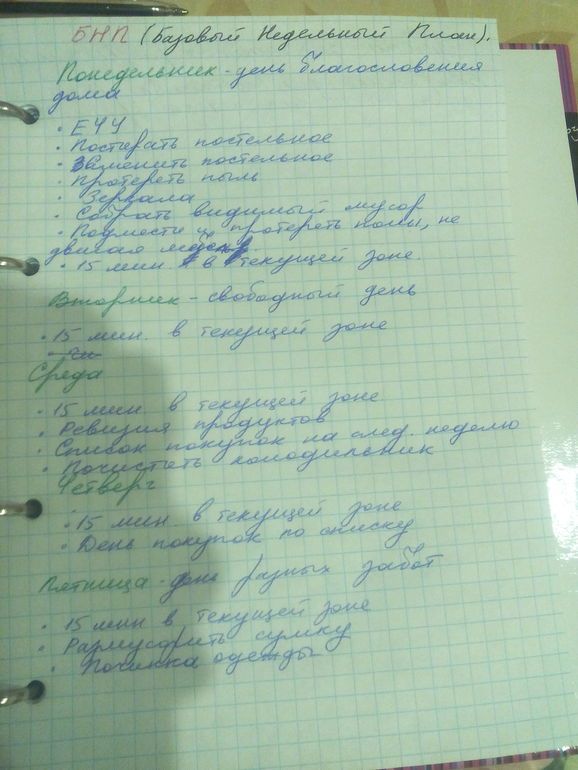 БНП (Базовый Недельный План).
Понедельник - день благословения
дома
· ЕЧУ
· Постирать постельное
· Заменить постельное
· Протереть пыль
· Зеркала
· Собрать видимый мусор
· Подмести и протереть полы, не
двигая
· 15 мин. в текущей зоне.
Вторник - свободный день
· 15 мин. в текущей зоне
Среда
· 15 мин. в текущей зоне
· Ревизия продуктов
· Список покупок на след. неделю
· Почистить холодильник
Четверг
· 15 мин. в текущей зоне
· День покупок по списку
Пятница - день разных забот
· 15 мин в текущей зоне
· Размусорить сумку
· Починка одежды